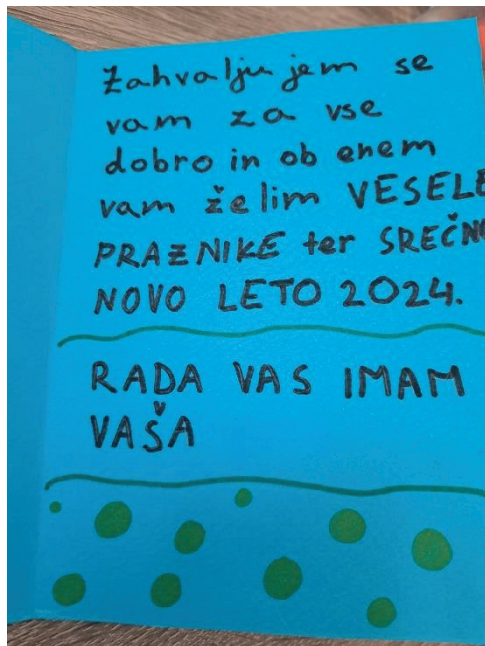 Zahvaljujem se
vam za vse
dobro in ob enem
vam želim VESELE
PRAZNIKE ter SREČNO
NOVO LETO 2024.
RADA VAS IMAM
VAŠA